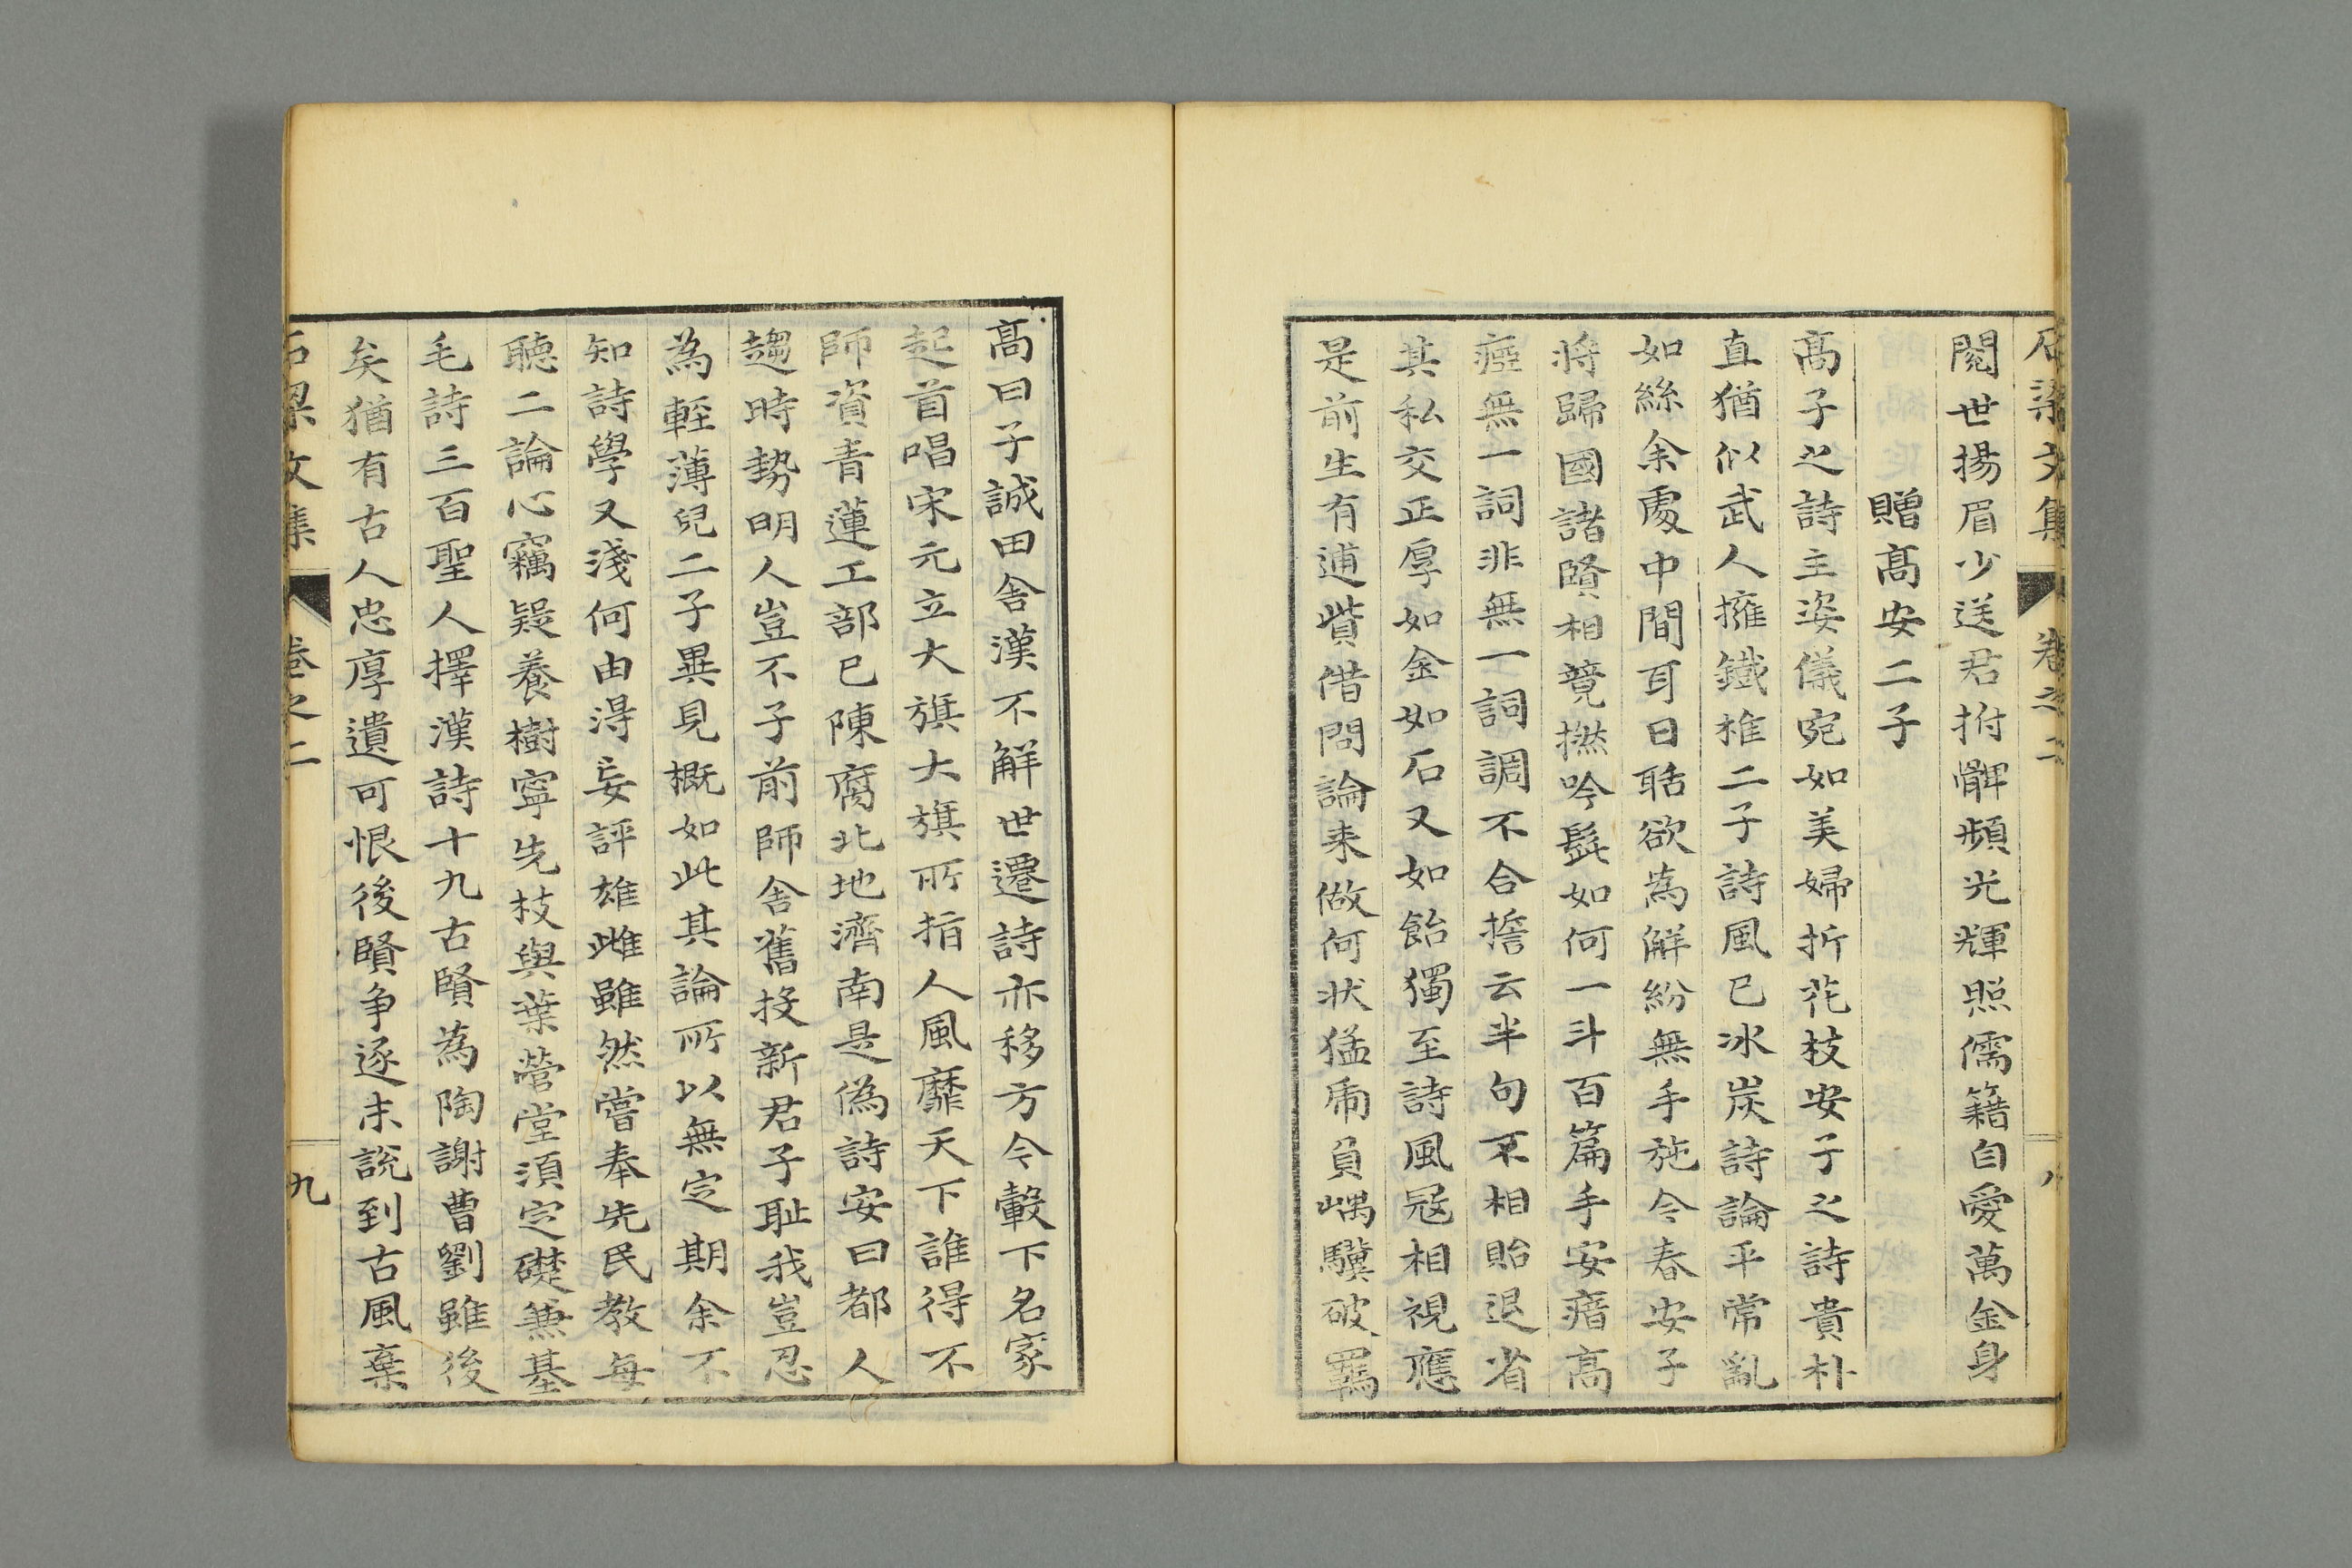 石梁文集 卷之二 八
閱世揚眉少送君拊髀頻光輝照儒籍自愛萬金身
贈髙安二子
髙子之詩主姿儀宛如美婦折花枝安子之詩貴朴
直猶似武人擁鐵椎二子詩風已冰炭詩論平常亂
如絲余處中間耳日聒欲為解紛無手施令春安子
將歸國諸賢相競撚吟髭如何一斗百篇手安瘖高
瘂無一詞非無一詞調不合擔云半句不相貽退省
其私交正厚如金如石又如飴獨至詩風冦相視應
是前生有逋貲借問論来做何状猛乕負嵎驥破羈
髙曰子誠田舎漢不觧世遷詩亦移方今轂下名家
起首唱宋元立大旗大旗所指人風靡天下誰得不
師資青蓮工部已陳腐北地濟南是偽詩安曰都人
趨時勢明人豈不子前師舎舊投新君子耻我豈忍
為輕薄兒二子異見概如此其論所以無定期余不
知詩學又淺何由淂妄評雄雌雖然嘗奉先民教每
聽二論心竊疑養樹寧先枝與葉營堂須定礎兼基
毛詩三百聖人擇漢詩十九古賢為陶謝曹劉雖後
矣猶有古人忠厚遺可恨後賢争逐末說到古風棄
石梁文集 卷之二 九